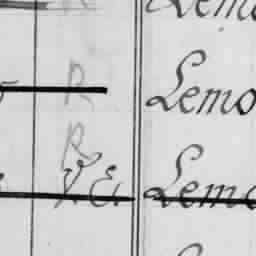 Lemo
R Lemo
R
V.E. Lemo